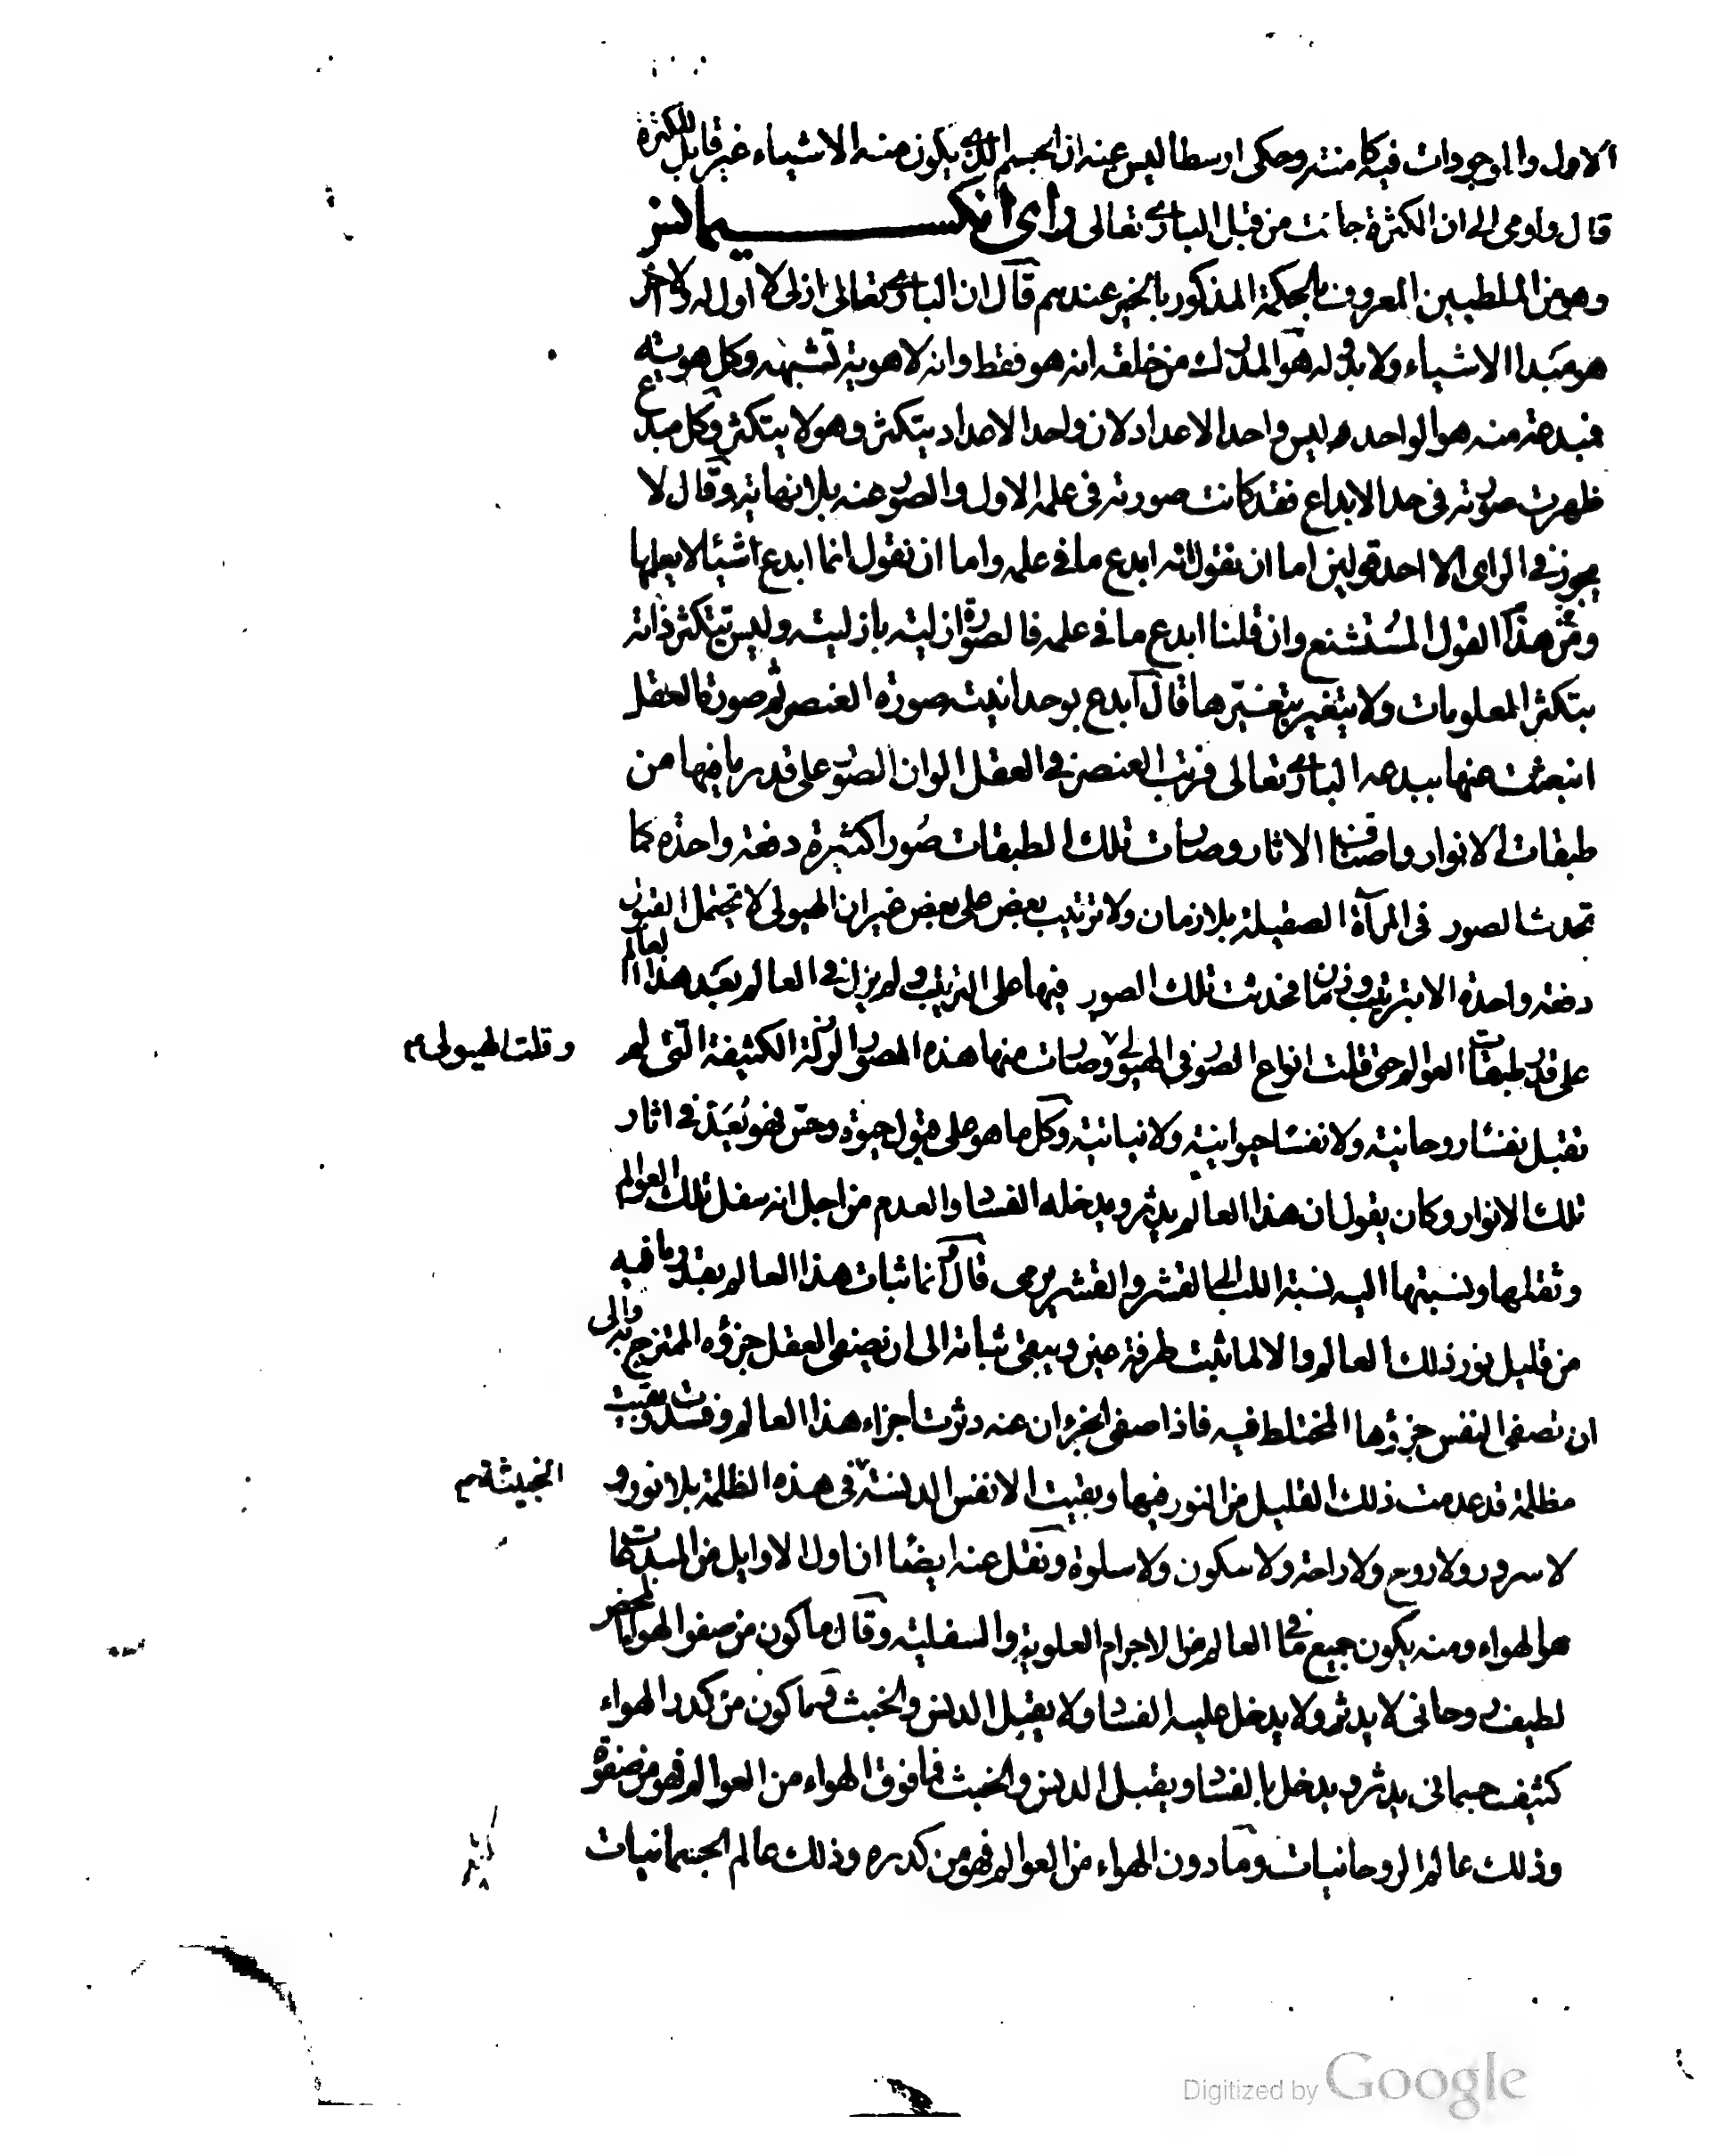 الاول والموجودات فيه كامنة وحكى ارسطاليس عنه ان الجسم الذى يكون منه الاشياء غير قابل للكثرة
قال واومى الى ان الكثرة جاءت من قبل البارى تعالى راى انكسيمانس
وهو من الملطيين المعروف بالحكمة المذكور بالخير عندهم قال ان البارى تعالى ازلى لا اول له ولا اخر
هو مبدا الاشياء ولا بدو له هو المدرك من خلقه انه هو فقط وانه لا هوية تشبهه وكل هوية
فمبدعة منه هو الواحد ليس واحد الاعداد لان واحد الاعداد يتكثر وهو لا يتكثر وكل مبدع
ظهرت صورته فى حد الابداع فقد كانت صورته فى علمه الاول والصور عنده بلا نهاية وقال لا
يجوز فى الراى الا احد قولين اما ان نقول انه ابدع ما فى علمه واما ان نقول انما ابدع اشيا لا يعلمها
وهذا القول المستشنع وان قلنا ابدع ما فى علمه فالصورة ازلية بازليته وليس يتكثر ذاته
بتكثر المعلومات ولا يتغير بتغيرها قال ابدع بوحدانيته صورة العنصر ثم صورة العقل
انبعثت عنها ببدعه البارى تعالى فرتب العنصر فى العقل الوان الصور على قدر ما فيها من
طبقات الانوار واصناف الاثار وصارت تلك الطبقات صورا كثيرة دفعة واحدة كما
تحدث الصور فى المرآة الصقيلة بلا زمان ولا ترتيب بعض على بعض غير ان الهيولى لا تحتمل القبول
دفعة واحدة الا بترتيب وزمان فحدثت تلك الصور فيها على الترتيب ولم يزل فى العالم بعد هذا العالم
على قدر طبقات العوالم حتى قلت انواع الصور فى الهيولى وصارت منها هذه الصور الرذلة الكثيفة التى لم
وقلت الهيولى م
تقبل نفسا روحانية ولا نفسا حيوانية ولا نباتية وكل ما هو على قبول حيوة وحس فهو بعد فى اثار
تلك الانوار وكان يقول ان هذا العالم يدثر ويدخله الفساد والعدم من اجل انه سفل تلك العوالم
وثقلها ونسبتها اليه نسبة اللب الى القشر والقشر يرمى قال وانما ثبات هذا العالم بقدر ما فيه
من قليل نور ذلك العالم والا لما ثبت طرفة عين ويبقى ثباته الى ان يصفى العقل جزؤه الممتزج به والى
ان تصفى النفس جزؤها المختلط فيه فاذا صفى الجزءان عنه دثرت اجزاء هذا العالم وفسدت وبقيت
مظلمة قد عدمت ذلك القليل من النور فيها وبقيت الانفس الدنسة فى هذه الظلمة بلا نور و
الخبيثة م
لا سرور ولا روح ولا راحة ولا سكون ولا سلوة ونقل عنه ايضا ان اول الاوايل من المبدعات
هو الهواء ومنه يكون جميع ما فى العالم من الاجرام العلوية والسفلية وقال ما كون من صفو الهواء المحض
لطيف روحانى لا يدثر ولا يدخل عليه الفساد ولا يقبل الدنس والخبث وما كون من كدر الهواء
كثيف جسمانى يدثر ويدخل الفساد ويقبل الدنس والخبث فما فوق الهواء من العوالم فهو من صفوه
وذلك عالم الروحانيات وما دون الهواء من العوالم فهو من كدره وذلك عالم الجسمانيات
Digitized by Google